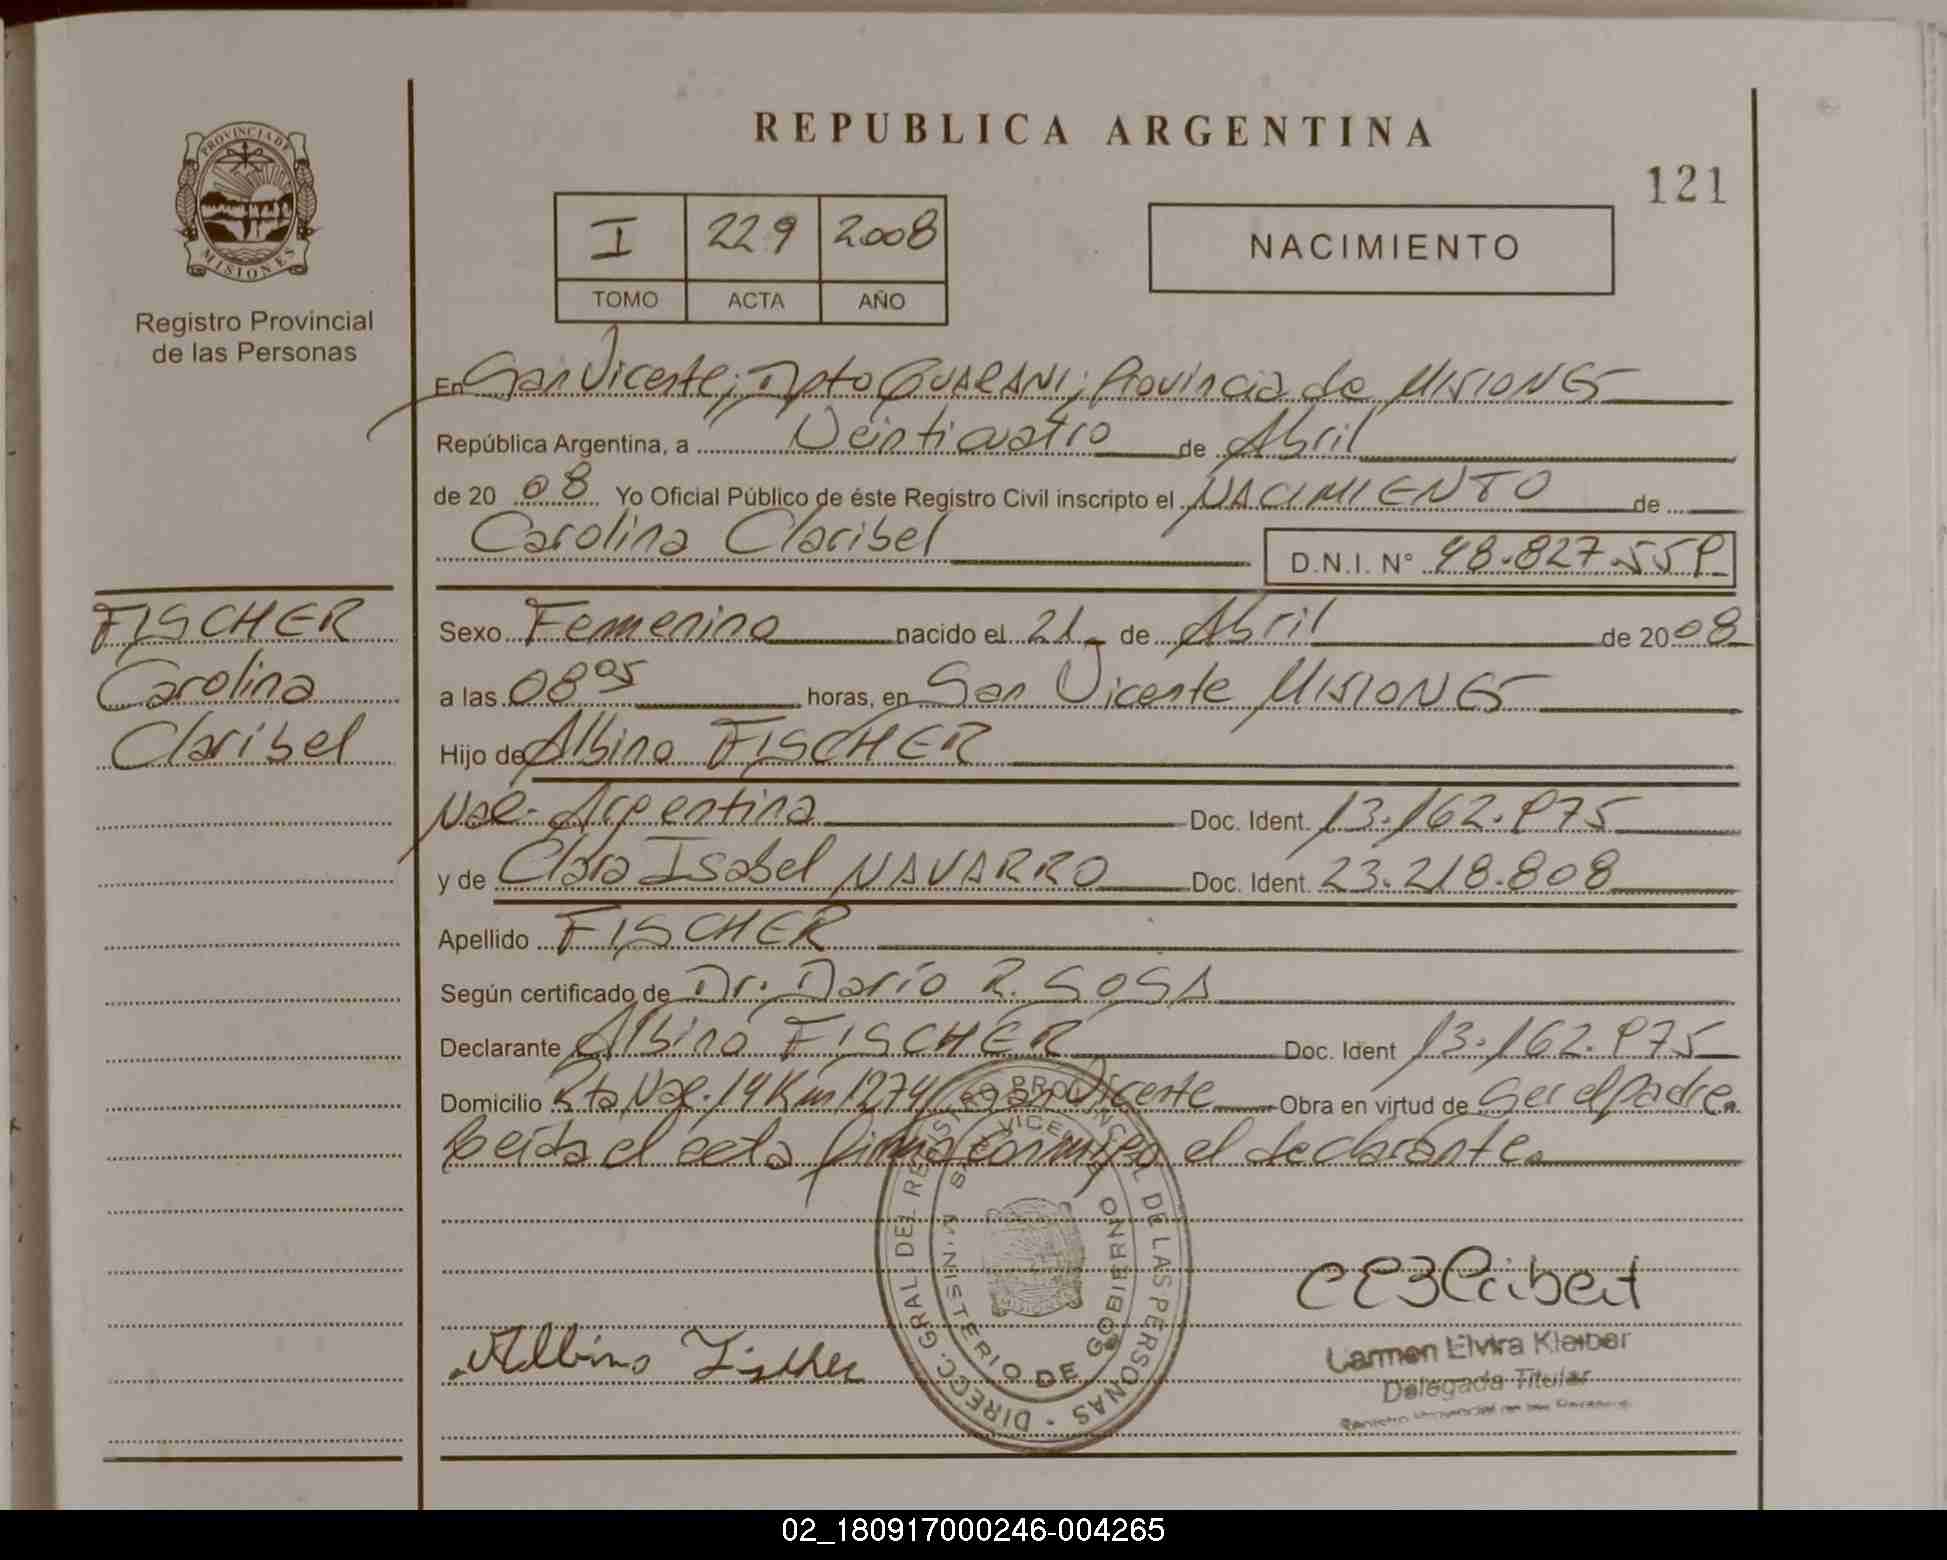 REPUBLICA ARGENTINA
121
PROVINCIA DE
MISIONES
Registro Provincial
de las Personas
I 229 2008
TOMO ACTA AÑO
NACIMIENTO
En San Vicente; Dpto GUARANI; Provincia de MISIONES
República Argentina, a Veinticuatro de Abril
de 2008 Yo Oficial Público de éste Registro Civil inscripto el NACIMIENTO de
Carolina Claribel D.N.I. N° 48.827.559
FISCHER
Carolina
Claribel
Sexo Femenino nacido el 21 de Abril de 2008
a las 08 05 horas, en San Vicente MISIONES
Hijo de Albino FISCHER
Nac. Argentina Doc. Ident. 13.162.975
y de Clara Isabel NAVARRO Doc. Ident. 23.218.808
Apellido FISCHER
Según certificado de Dr. Darío R. SOSA
Declarante Albino FISCHER Doc. Ident 13.162.975
Domicilio Rta Nac. 14 Km 1274 San Vicente Obra en virtud de ser el padre.
Leída el acta firma conmigo el declarante.
DIRECC. GRAL. DEL REGISTRO PROVINCIAL DE LAS PERSONAS
SAN VICENTE
MINISTERIO DE GOBIERNO
MISIONES
Albino Fischer
Carmen Elvira Kleiber
Delegada Titular
Registro Provincial de las Personas
02_180917000246-004265